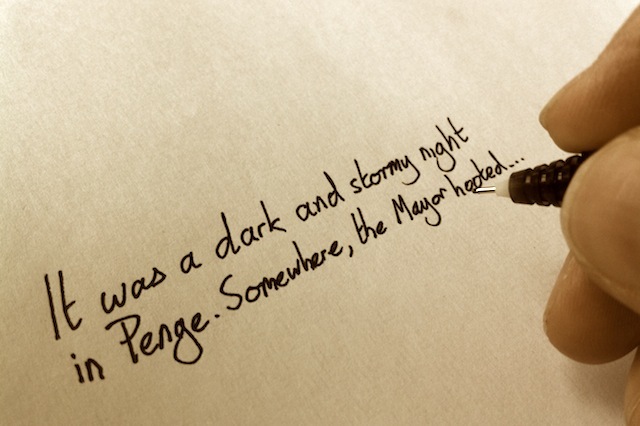 It was a dark and stormy night
in Penge. Somewhere, the Mayor hooted...